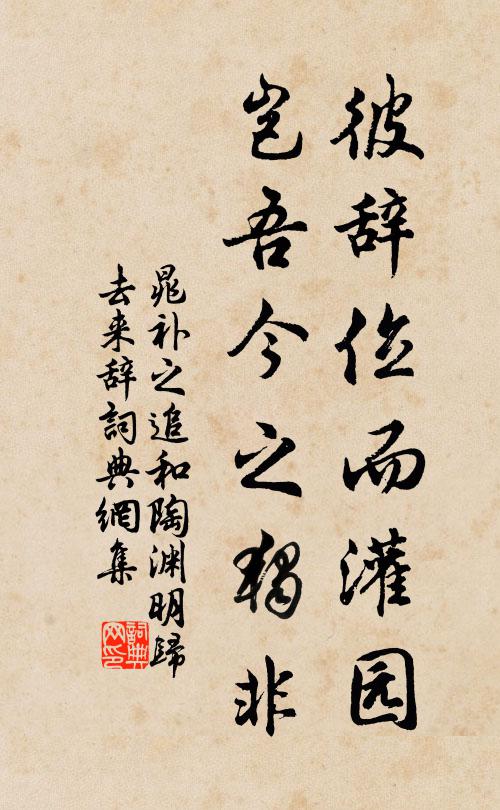 彼辞位而灌园
岂吾今之独非
晁补之追和陶渊明歸
去来辞詞典網集
詞典
网印